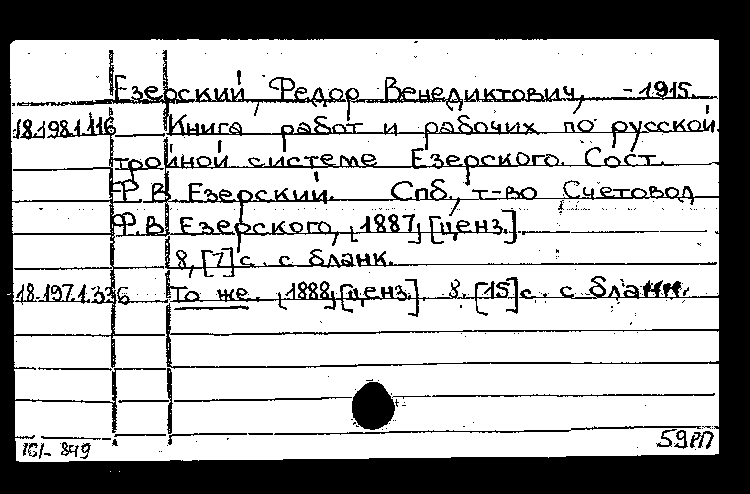 Езерский, Федор Венедиктович, -1915.
18.198.1.116 Книга работ и рабочих по русской
тройной системе Езерского. Сост.
Ф.В. Езерский. Спб., т-во Счетовод
Ф.В. Езерского, [1887] [ценз.].
8, [7] с. с бланк.
18.197.1.336 То же. [1888] [ценз.]. 8. [15] с. с бланк.
59РП